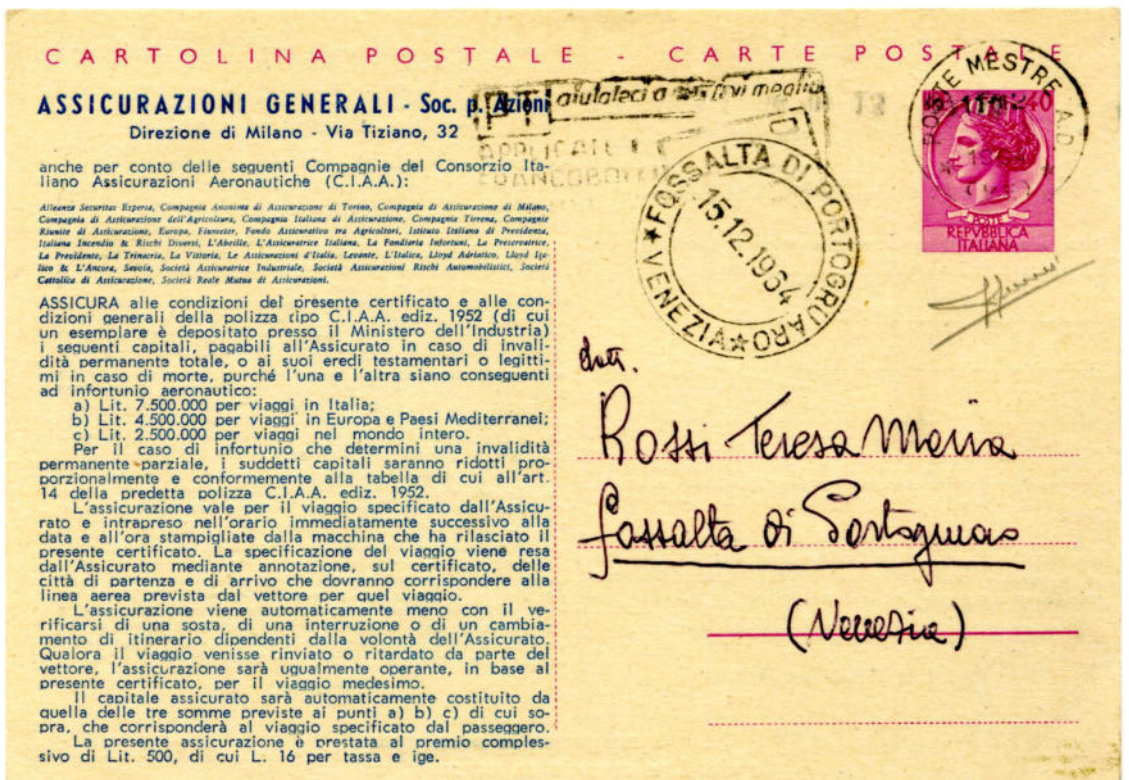 CARTOLINA POSTALE - CARTE POSTALE
ASSICURAZIONI GENERALI - Soc. p. Azioni
Direzione di Milano - Via Tiziano, 32
anche per conto delle seguenti Compagnie del Consorzio Ita-
liano Assicurazioni Aeronautiche (C.I.A.A.):
Alleanza Securitas Esperia, Compagnia Anonima di Assicurazione di Torino, Compagnia di Assicurazione di Milano,
Compagnia di Assicurazione dell'Agricoltura, Compagnia Italiana di Assicurazione, Compagnia Tirrena, Compagnie
Riunite di Assicurazione, Europa, Fiumeter, Fondo Assicurativo tra Agricoltori, Istituto Italiano di Previdenza,
Italiana Incendio & Rischi Diversi, L'Abeille, L'Assicuratrice Italiana, La Fondiaria Infortuni, La Preservatrice,
La Previdente, La Trinacria, La Vittoria, Le Assicurazioni d'Italia, Levante, L'Italica, Lloyd Adriatico, Lloyd Ita-
lico & L'Ancora, Savoia, Società Assicuratrice Industriale, Società Assicurazioni Rischi Automobilistici, Società
Cattolica di Assicurazione, Società Reale Mutua di Assicurazioni.
ASSICURA alle condizioni del presente certificato e alle con-
dizioni generali della polizza tipo C.I.A.A. ediz. 1952 (di cui
un esemplare è depositato presso il Ministero dell'Industria)
i seguenti capitali, pagabili all'Assicurato in caso di invali-
dità permanente totale, o ai suoi eredi testamentari o legitti-
mi in caso di morte, purché l'una e l'altra siano conseguenti
ad infortunio aeronautico:
a) Lit. 7.500.000 per viaggi in Italia;
b) Lit. 4.500.000 per viaggi in Europa e Paesi Mediterranei;
c) Lit. 2.500.000 per viaggi nel mondo intero.
Per il caso di infortunio che determini una invalidità
permanente parziale, i suddetti capitali saranno ridotti pro-
porzionalmente e conformemente alla tabella di cui all'art.
14 della predetta polizza C.I.A.A. ediz. 1952.
L'assicurazione vale per il viaggio specificato dall'Assicu-
rato e intrapreso nell'orario immediatamente successivo alla
data e all'ora stampigliate dalla macchina che ha rilasciato il
presente certificato. La specificazione del viaggio viene resa
dall'Assicurato mediante annotazione, sul certificato, delle
città di partenza e di arrivo che dovranno corrispondere alla
linea aerea prevista dal vettore per quel viaggio.
L'assicurazione viene automaticamente meno con il ve-
rificarsi di una sosta, di una interruzione o di un cambia-
mento di itinerario dipendenti dalla volontà dell'Assicurato.
Qualora il viaggio venisse rinviato o ritardato da parte del
vettore, l'assicurazione sarà ugualmente operante, in base al
presente certificato, per il viaggio medesimo.
Il capitale assicurato sarà automaticamente costituito da
quella delle tre somme previste ai punti a) b) c) di cui so-
pra, che corrisponderà al viaggio specificato dal passeggero.
La presente assicurazione è prestata al premio comples-
sivo di Lit. 500, di cui L. 16 per tassa e ige.
PT aiutateci a servirvi meglio
APPLICATE I
FRANCOBOLLI
FOSSALTA DI PORTOGRUARO
15.12.1964
★VENEZIA★
POSTE MESTRE A.D.
40
POSTE
REPVBBLICA
ITALIANA
dott.
Rossi Teresa Maria
Fossalta di Portogruaro
(Venezia)